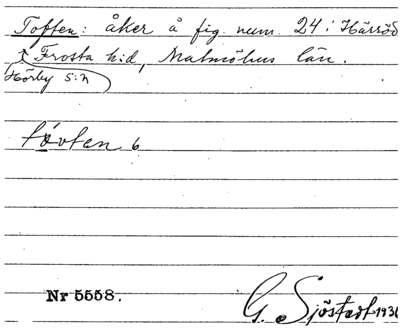 Toften: åker å fig. num. 24 i Härröd
Frosta h:d, Malmöhus län.
Hörby s:n
tóvten 6
Nr 5558.
G. Sjöstedt 1936